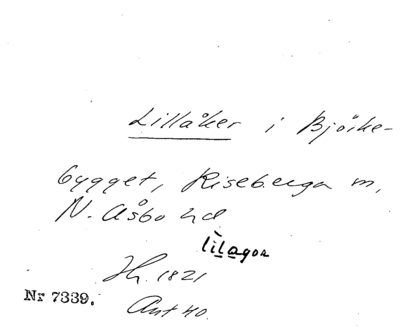 Lillåker i Björke-
bygget, Riseberga m,
N. Åsbo hd
lilagor
Jh. 1821
Nr 7339.
Ant 40.